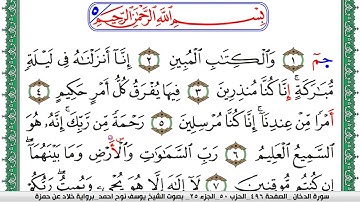 بِسْمِ اللَّهِ الرَّحْمَٰنِ الرَّحِيمِ
حمٓ ١ وَالْكِتَابِ الْمُبِينِ ٢ إِنَّا أَنزَلْنَاهُ فِى لَيْلَةٍ
مُّبَارَكَةٍ إِنَّا كُنَّا مُنذِرِينَ ٣ فِيهَا يُفْرَقُ كُلُّ أَمْرٍ حَكِيمٍ ٤
أَمْرًا مِّنْ عِندِنَا إِنَّا كُنَّا مُرْسِلِينَ ٥ رَحْمَةً مِّن رَّبِّكَ إِنَّهُ هُوَ
السَّمِيعُ الْعَلِيمُ ٦ رَبُّ السَّمَاوَاتِ وَالْأَرْضِ وَمَا بَيْنَهُمَا
إِن كُنتُم مُّوقِنِينَ ٧ لَا إِلَٰهَ إِلَّا هُوَ يُحْىِ وَيُمِيتُ رَبُّكُمْ
سورة الدخان _الصفحة ٤٩٦_الحزب ٥٠_الجزء ٢٥_ بصوت الشيخ يوسف نوح احمد_برواية خلاد عن حمزة